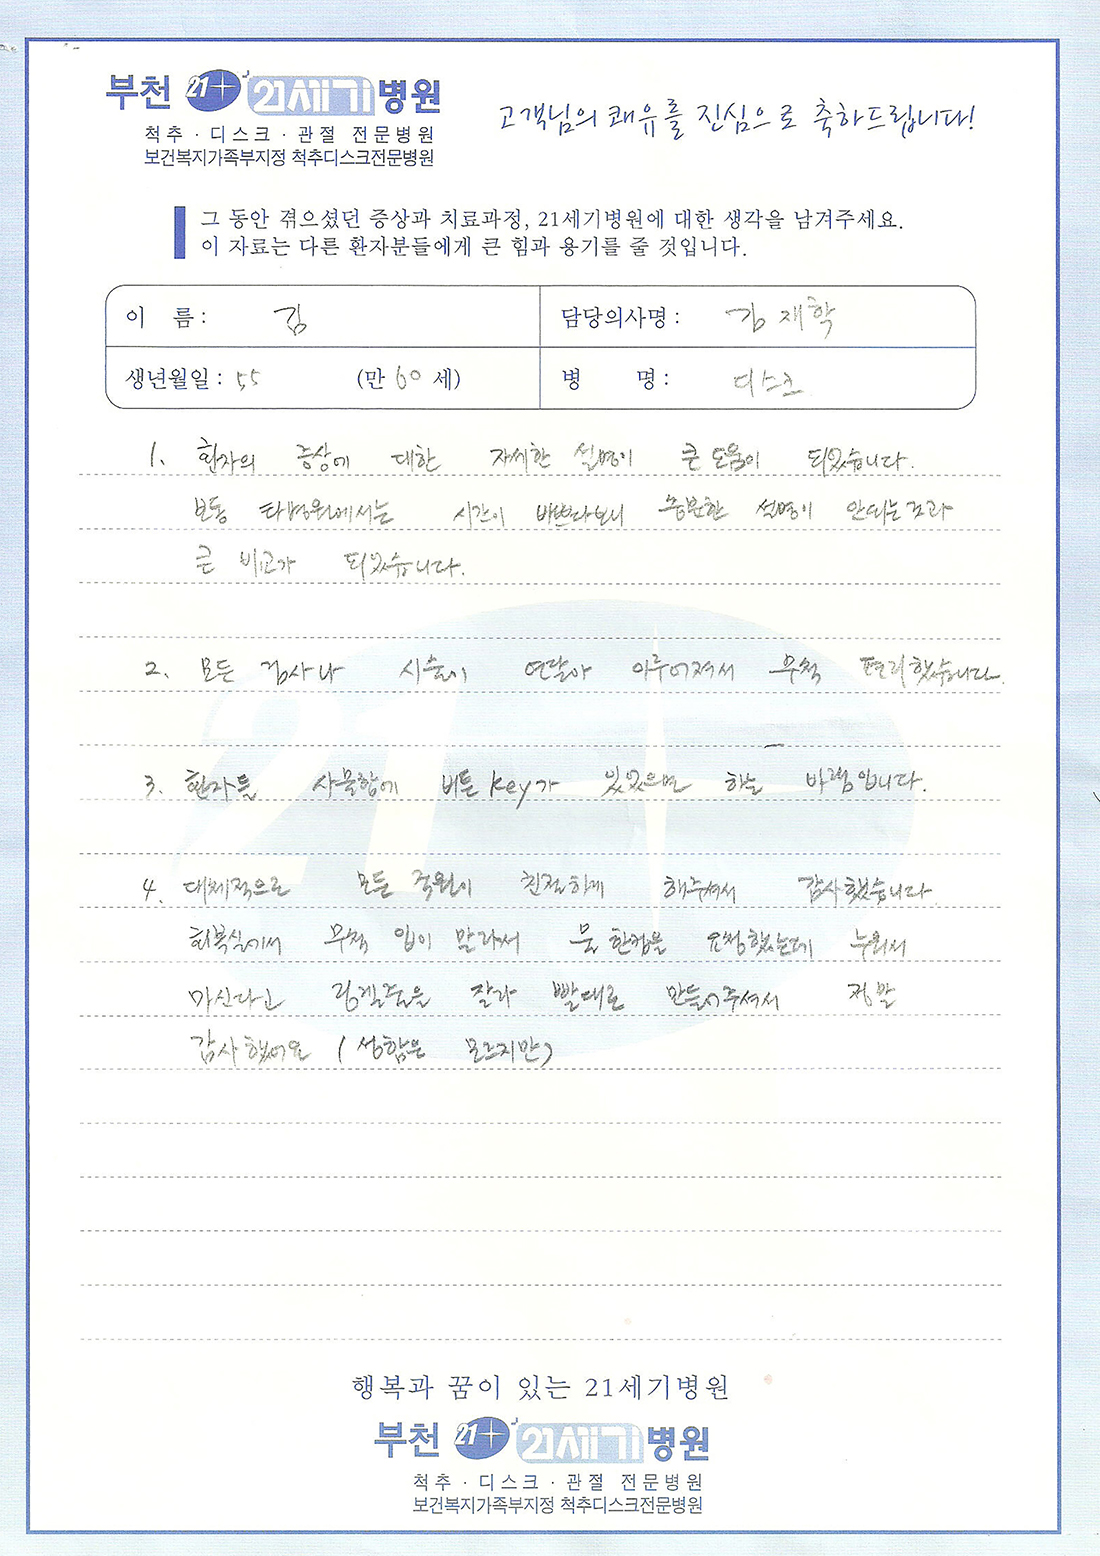 부천 21+ 21세기병원
척추 · 디스크 · 관절 전문병원
보건복지가족부지정 척추디스크전문병원
고객님의 쾌유를 진심으로 축하드립니다!
그 동안 겪으셨던 증상과 치료과정, 21세기병원에 대한 생각을 남겨주세요.
이 자료는 다른 환자분들에게 큰 힘과 용기를 줄 것입니다.
이 름 : 김
담당의사명 : 김재학
생년월일 : 55 (만 60 세)
병 명 : 디스크
1. 환자의 증상에 대한 자세한 설명이 큰 도움이 되었습니다.
보통 타병원에서는 시간이 바쁘다보니 충분한 설명이 안되는
큰 비교가 되었습니다.
2. 모든 검사나 시술이 연달아 이루어져서 무척 편리했습니다.
3. 환자들 사물함에 버튼 key가 있었으면 하는 바램입니다.
4. 대체적으로 모든 직원이 친절하게 해주셔서 감사했습니다.
회복실에서 무척 입이 말라서 물 한컵을 요청했는데 누워서
마신다고 링겔줄을 잘라 빨대로 만들어주셔서 정말
감사했어요 (성함은 모르지만)
행복과 꿈이 있는 21세기병원
부천 21+ 21세기병원
척추 · 디스크 · 관절 전문병원
보건복지가족부지정 척추디스크전문병원